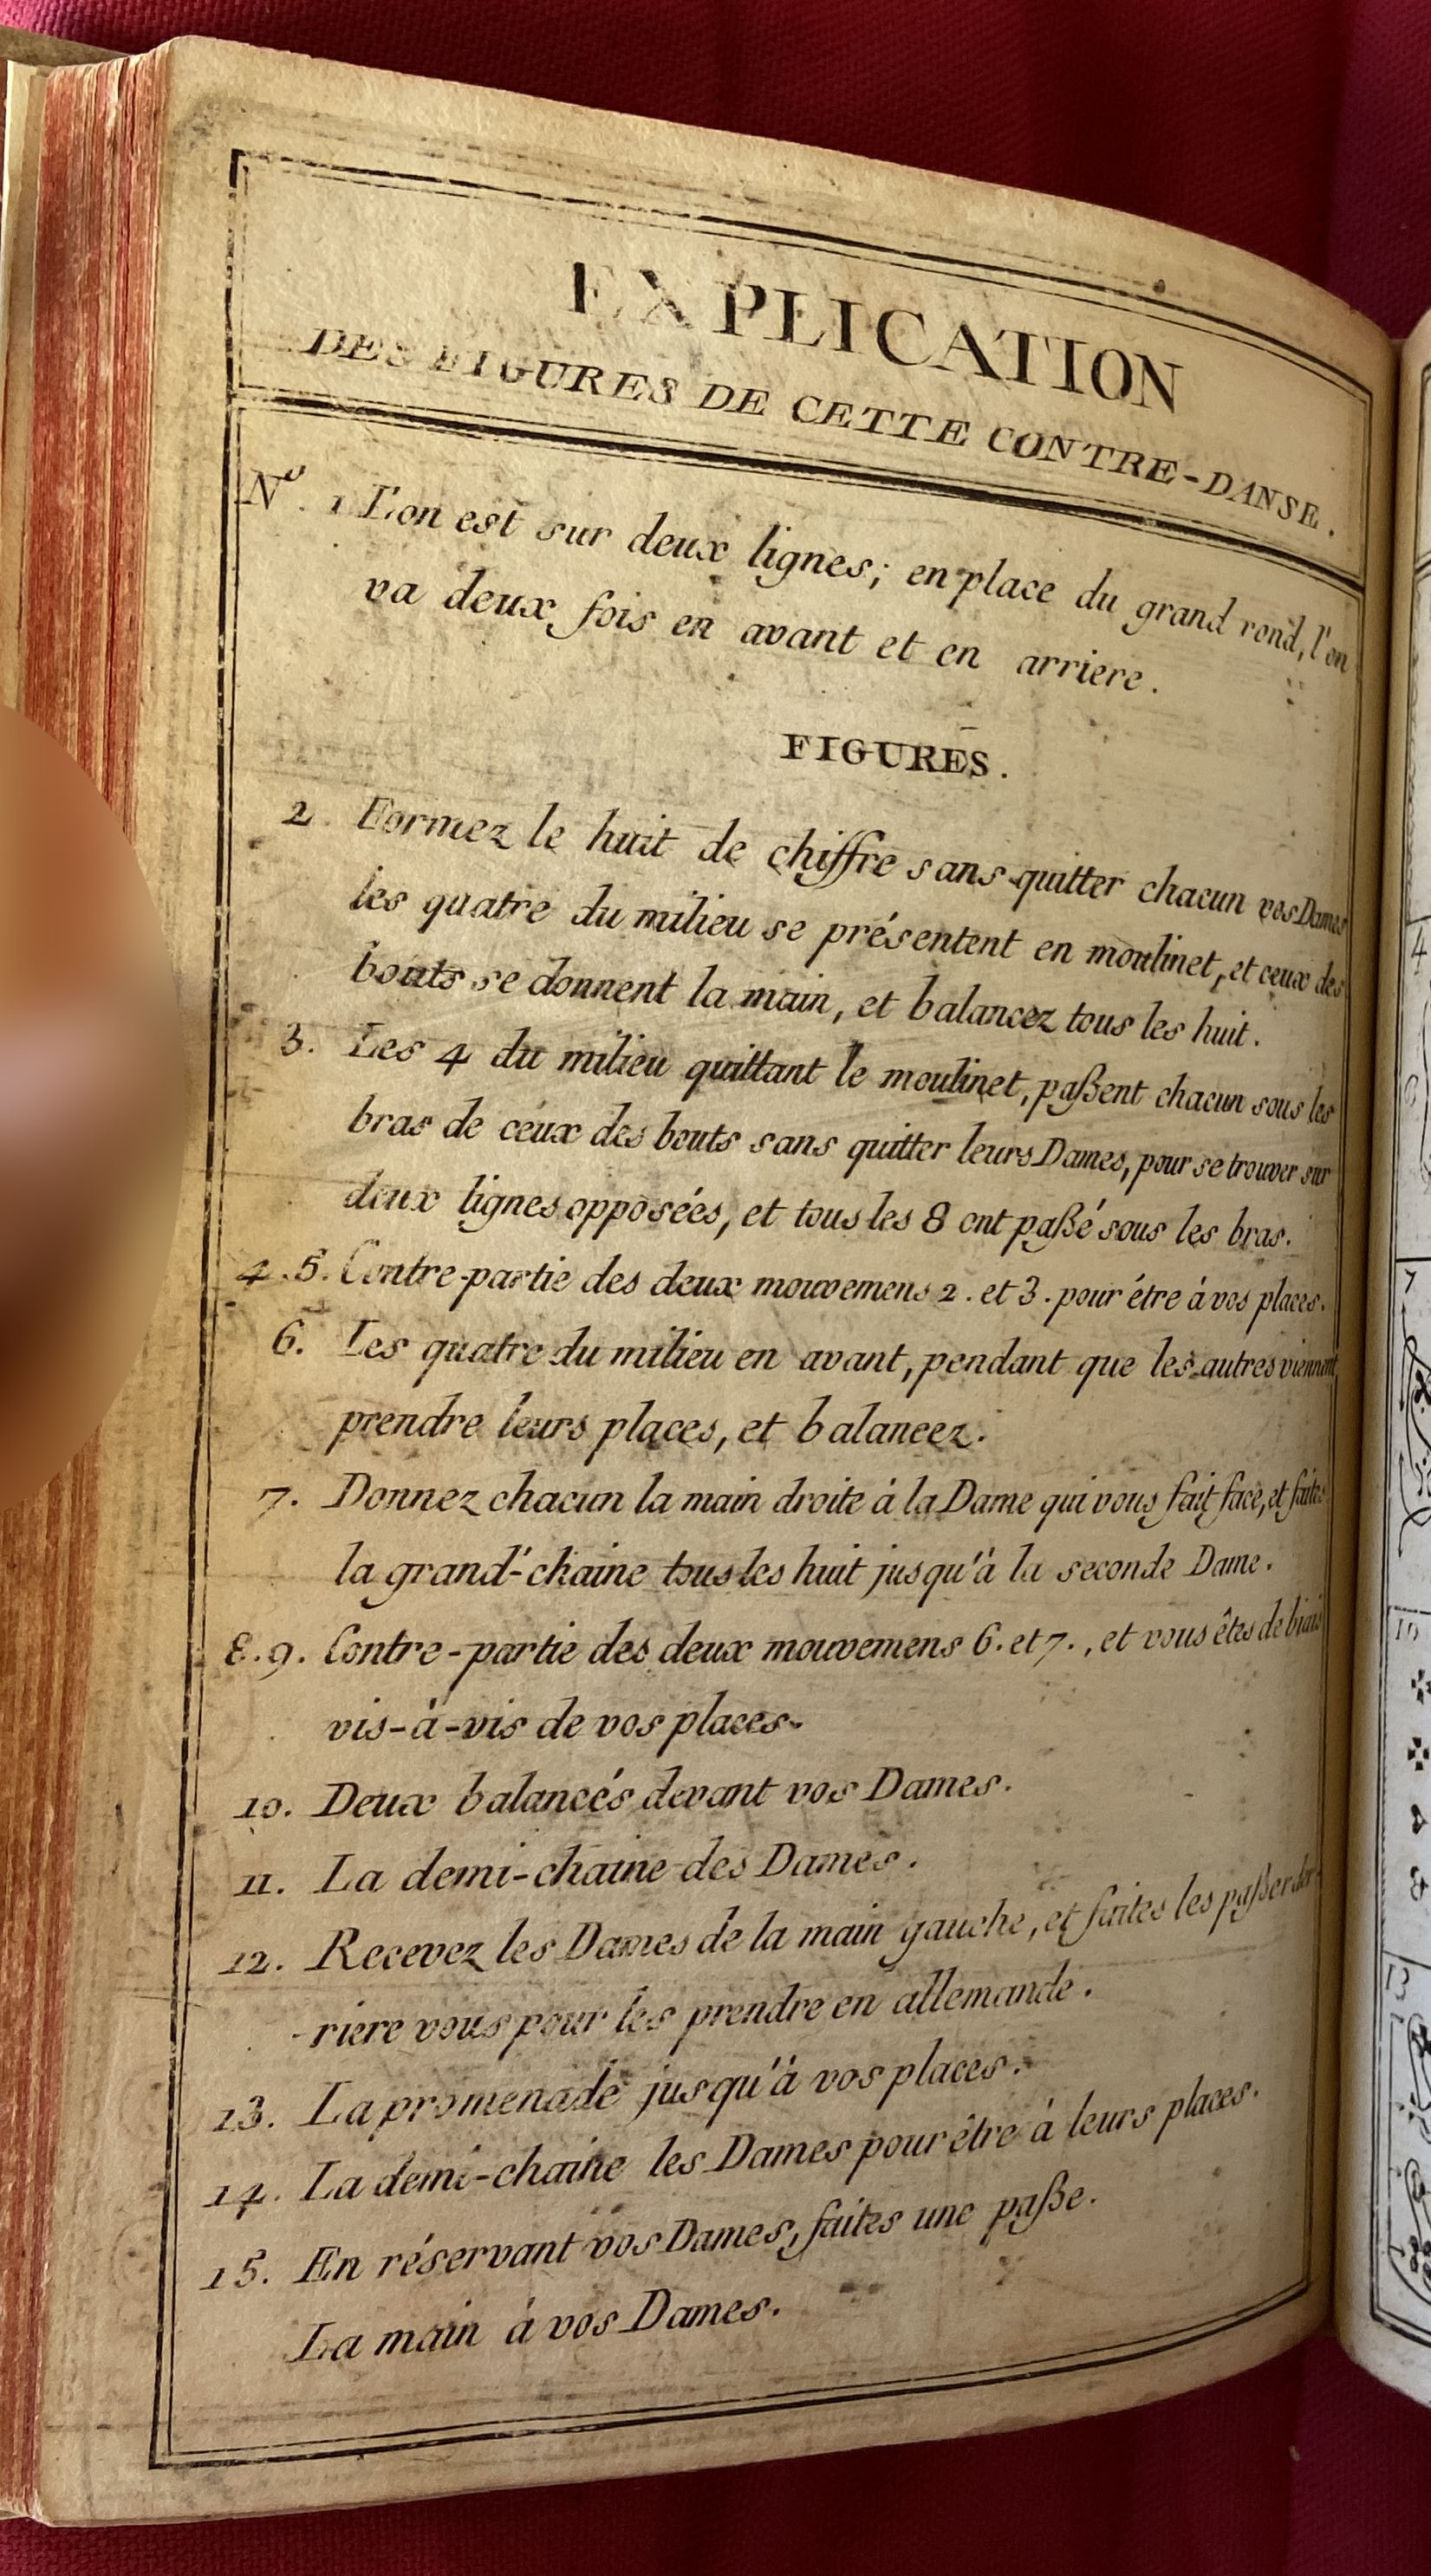 EXPLICATION
DES FIGURES DE CETTE CONTRE-DANSE.
N.º 1 L'on est sur deux lignes; en place du grand rond, l'on
va deux fois en avant et en arriere.
FIGURES.
2. Formez le huit de chiffre sans quitter chacun vos Dames
les quatre du milieu se présentent en moulinet, et ceux des
bouts se donnent la main, et balancez tous les huit.
3. Les 4 du milieu quittant le moulinet, paßent chacun sous les
bras de ceux des bouts sans quitter leurs Dames, pour se trouver sur
deux lignes opposées, et tous les 8 ont paßé sous les bras.
4.5. Contre-partie des deux mouvemens 2. et 3. pour étre à vos places.
6. Les quatre du milieu en avant, pendant que les autres viennent
prendre leurs places, et balancez.
7. Donnez chacun la main droite à la Dame qui vous fait face, et faites
la grand'-chaine tous les huit jusqu'à la seconde Dame.
8.9. Contre-partie des deux mouvemens 6. et 7., et vous êtes de biais
vis-à-vis de vos places.
10. Deux balancés devant vos Dames.
11. La demi-chaine des Dames.
12. Recevez les Dames de la main gauche, et faites les paßer der-
-riere vous pour les prendre en allemande.
13. La promenade jusqu'à vos places.
14. La demi-chaine les Dames pour être à leurs places.
15. En réservant vos Dames, faites une paße.
La main à vos Dames.
4
7
10
13